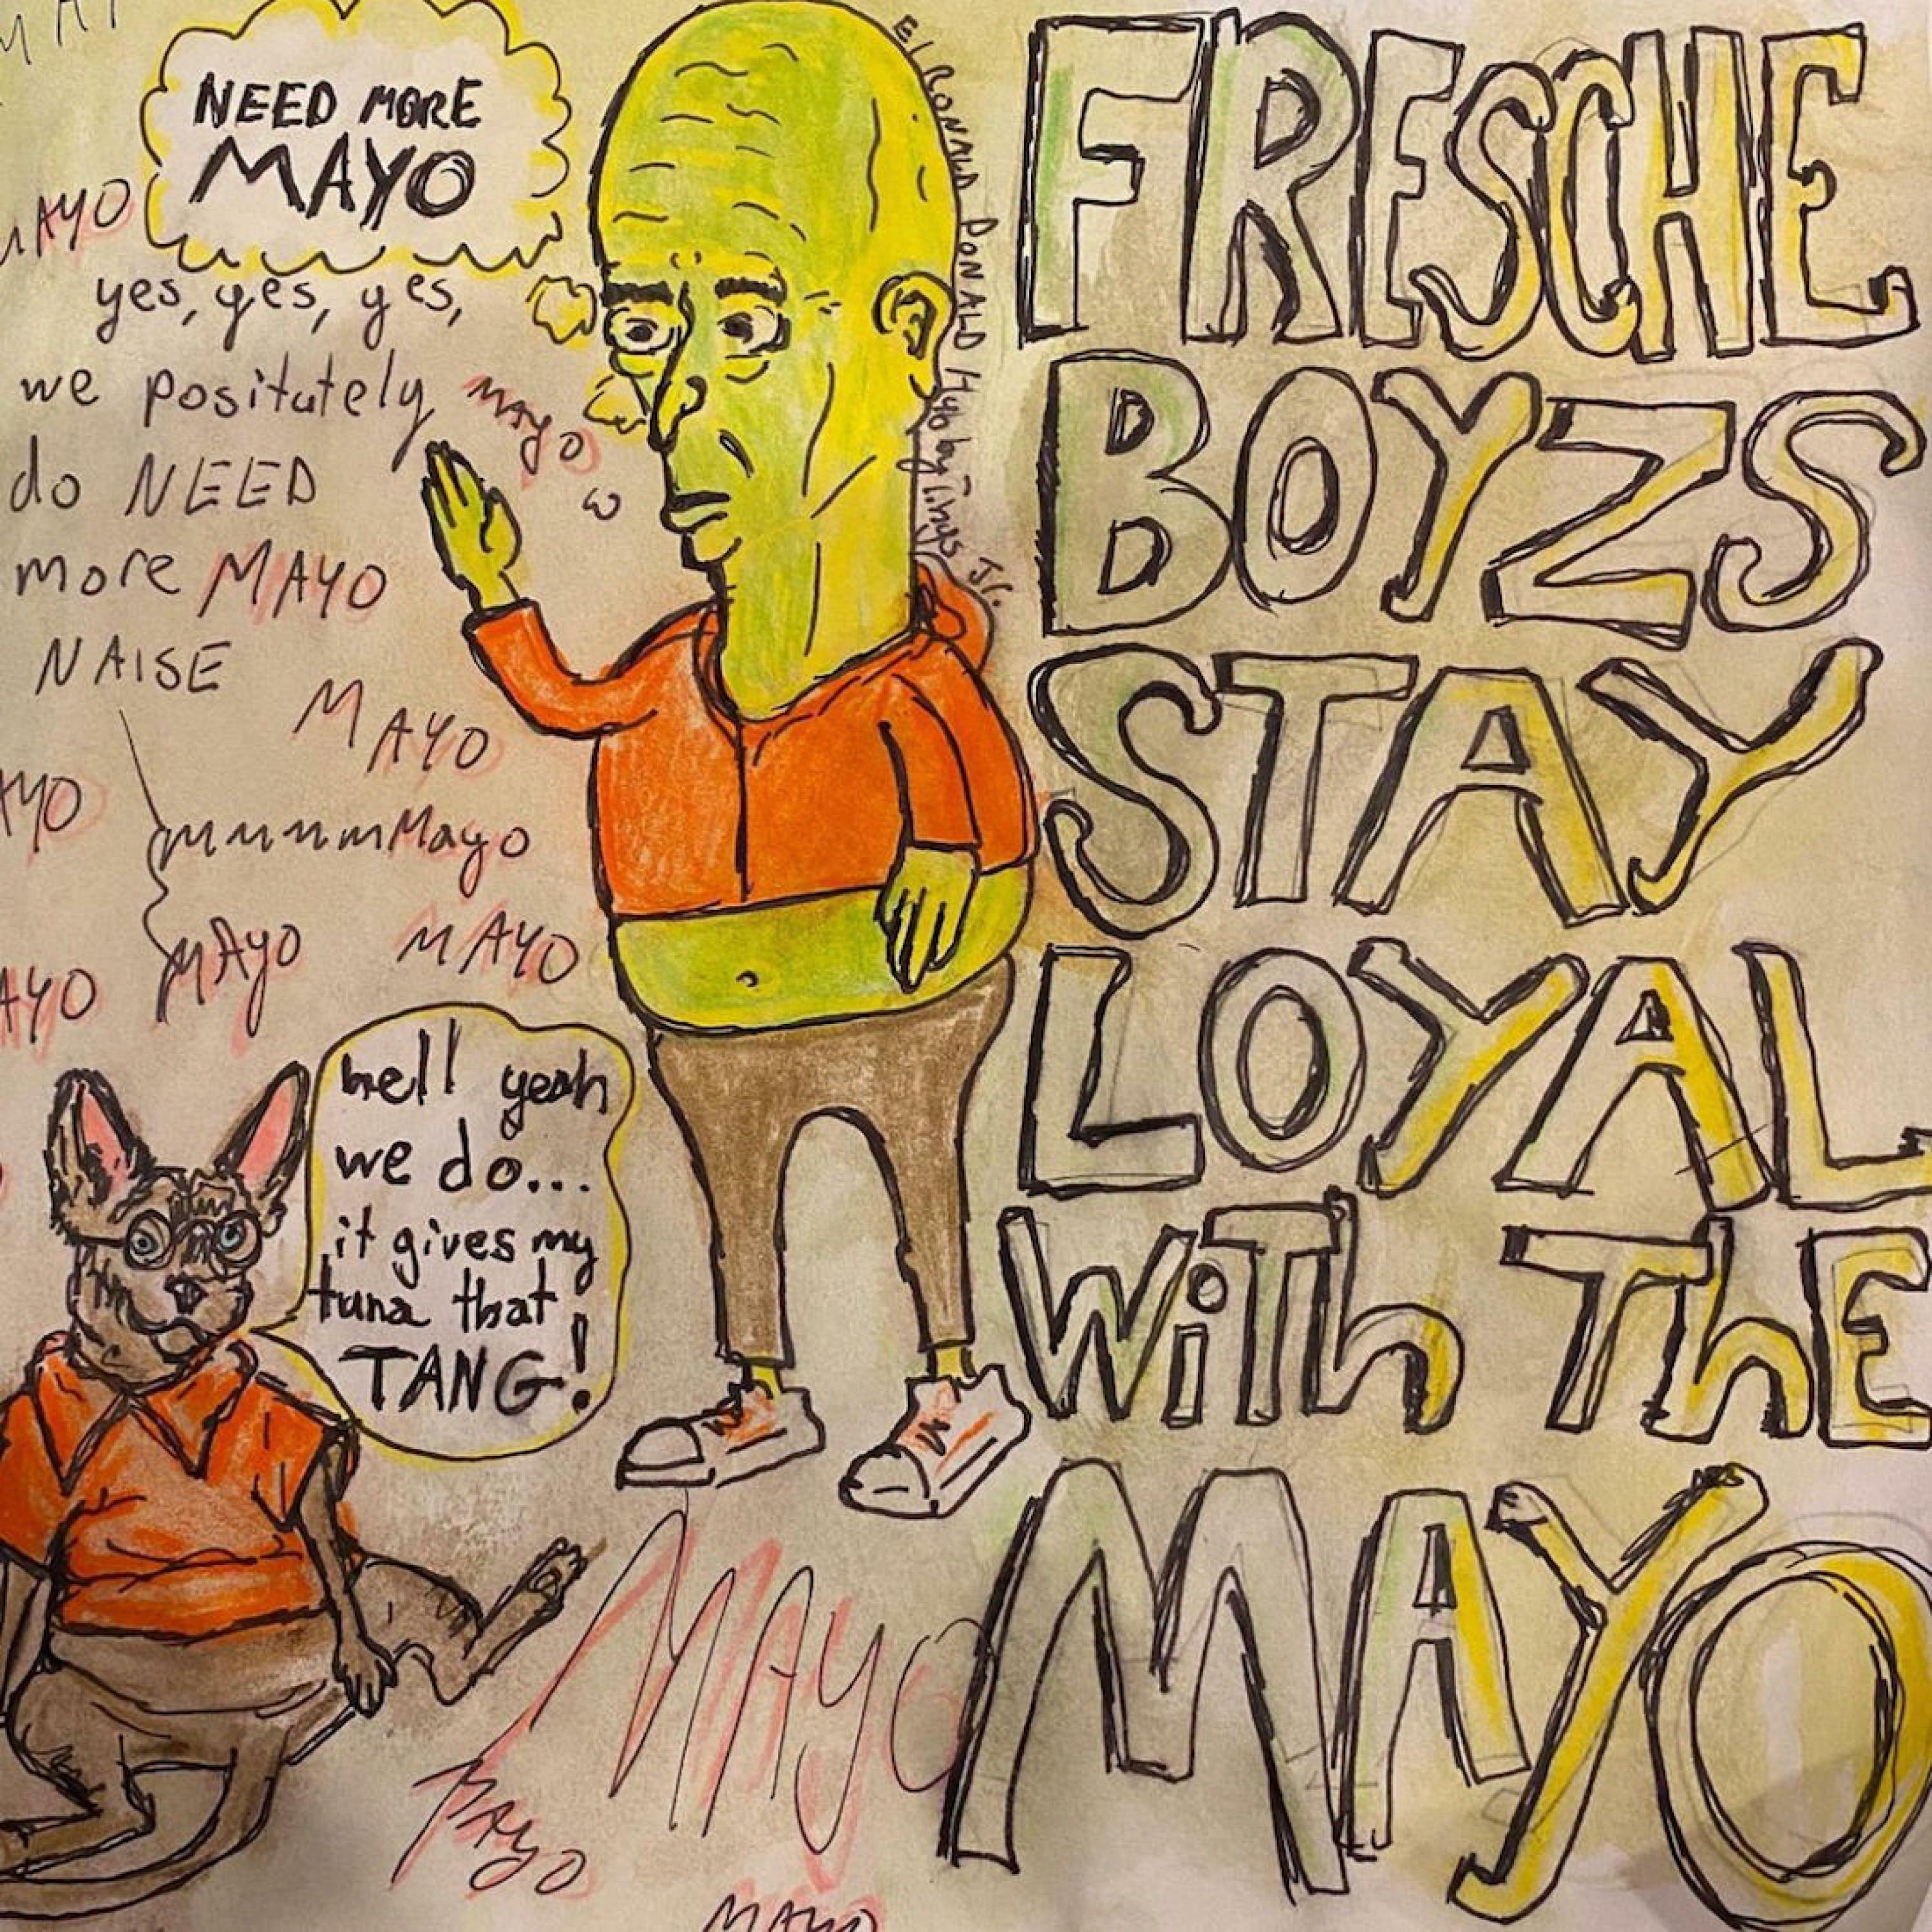 NEED MORE
MAYO
MAYO
yes, yes, yes,
we positutely
do NEED
more MAYO
NAISE
MAYO
MAYO
mmmmmMayo
MAYO
MAYO
hell yeah
we do...
it gives my
tuna that
TANG!
El RONALD DONALD
Jr.
FRESCHE
BOYZS
STAY
LOYAL
WiTh ThE
MAYO
MAYO
MAYO
MAYO